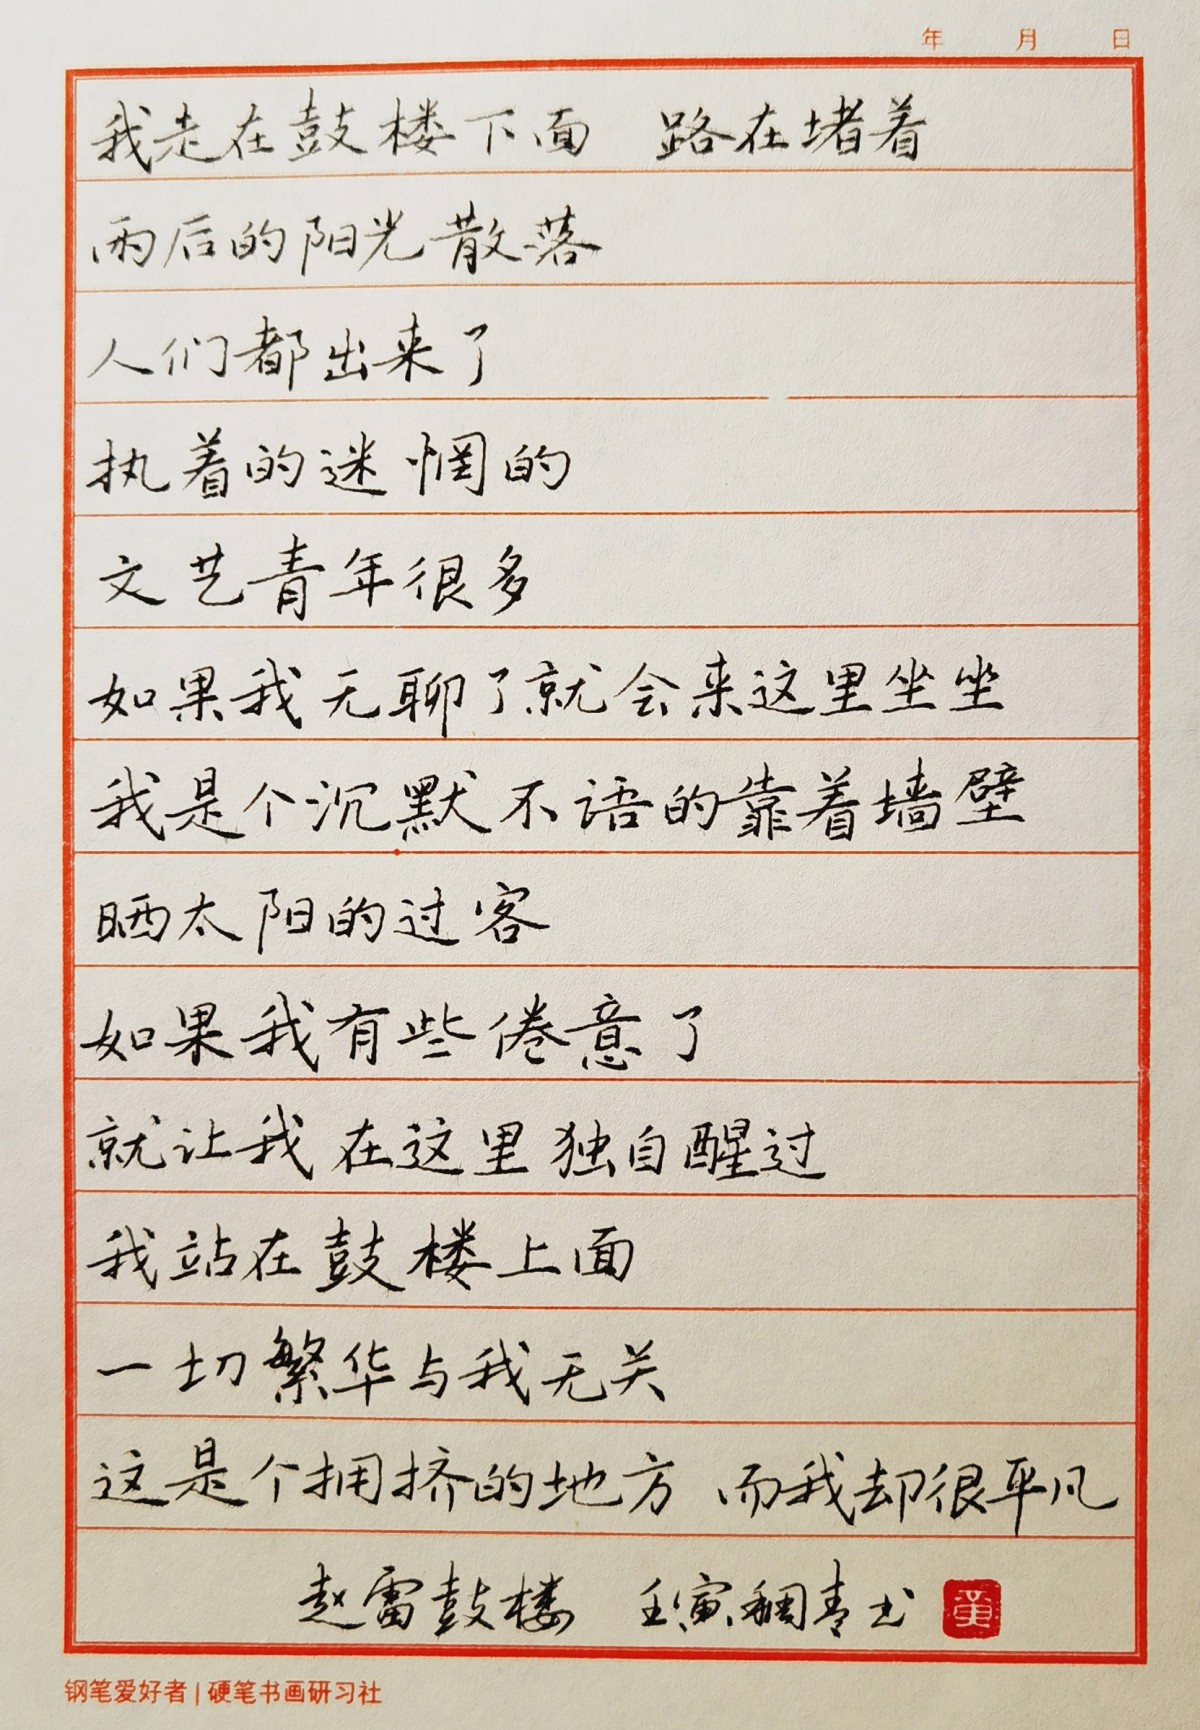 年 月 日
我走在鼓楼下面 路在堵着
雨后的阳光散落
人们都出来了
执着的迷惘的
文艺青年很多
如果我无聊了就会来这里坐坐
我是个沉默不语的靠着墙壁
晒太阳的过客
如果我有些倦意了
就让我在这里独自醒过
我站在鼓楼上面
一切繁华与我无关
这是个拥挤的地方 而我却很平凡
赵雷鼓楼 壬寅稠青书
钢笔爱好者 | 硬笔书画研习社